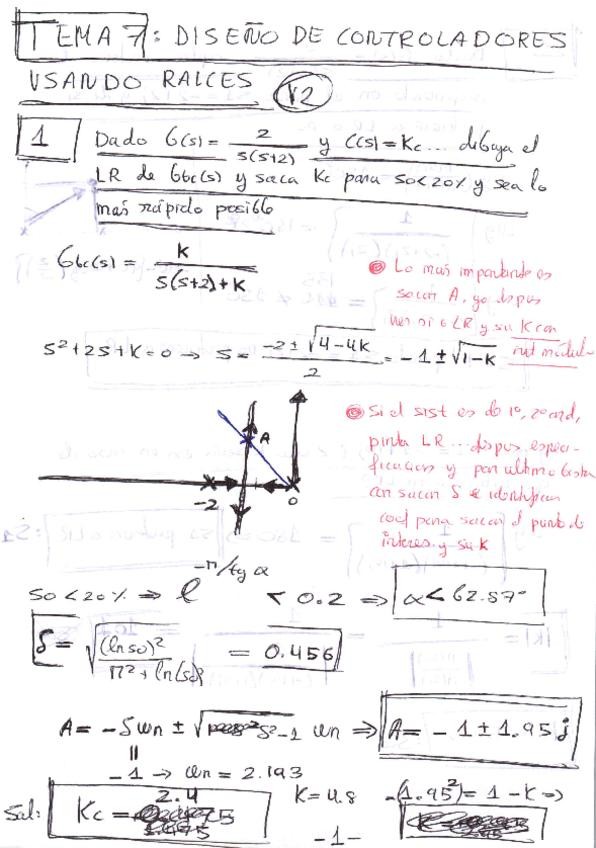 TEMA 7: DISEÑO DE CONTROLADORES
USANDO RAICES V2
1 Dado G(s) = 2 / s(s+2) y C(s) = Kc ... dibuja el
LR de Gbc(s) y saca Kc para so<20% y sea lo
mas rápido posible
Gbc(s) = K / s(s+2)+K
Lo mas importante es
sacar A, ya
LR y su K con
s²+2s+K=0 → s = -2 ± √4-4K / 2 = -1 ± √1-K
Si el sist es de 1º, 2º ord,
pinta LR ... despues especi-
ficacion y por ultimo
con sacar S e identifican
coef para sacar el punto de
interes y su K
A
-2
0
so < 20% ⇒ e^(-π/tg α) < 0.2 ⇒ α < 62.87°
δ = √(ln so)² / π² + ln(so)² = 0.456
A = -δωn ± √δ²-1 ωn ⇒ A = -1 ± 1.95j
-1 → ωn = 2.193
Sol: Kc = 2.4 K = 4.8 -(1.95²) = 1 - K ⇒
-1-